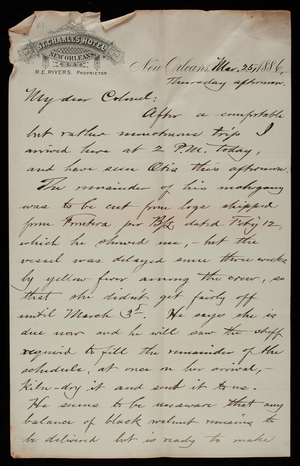 ST. CHARLES HOTEL
NEW ORLEANS,
LA.
R.E. RIVERS, PROPRIETOR.
New Orleans, Mar. 25, 1886.
Thursday afternoon.
My dear Colonel:
After a comfortable
but rather monotonous trip I
arrived here at 2 P.M. today,
and have seen Otis this afternoon.
The remainder of his mahogany
was to be cut from logs shipped
from Frontera per B/L dated Feby 12,
which he showed me, - but the
vessel was delayed some three weeks
by yellow fever among the crew, so
that she didn't get fairly off
until March 3d. He says she is
due now and he will saw the stuff
required to fill the remainder of the
schedule, at once on her arrival, -
kiln-dry it and send it to us.
He seems to be unaware that any
balance of black walnut remains to
be delivered but is ready to make